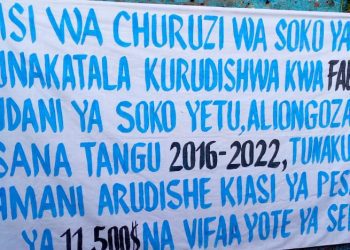 ISI WA CHURUZI WA SOKO YA
UNAKATALA KURUDISHWA KWA FA
UDANI YA SOKO YETU, ALIONGOZA
SANA TANGU 2016-2022, TUNAKU
AMANI ARUDISHE KIASI YA PES
YA 11,500$ NA VIFAA YOTE YA SE